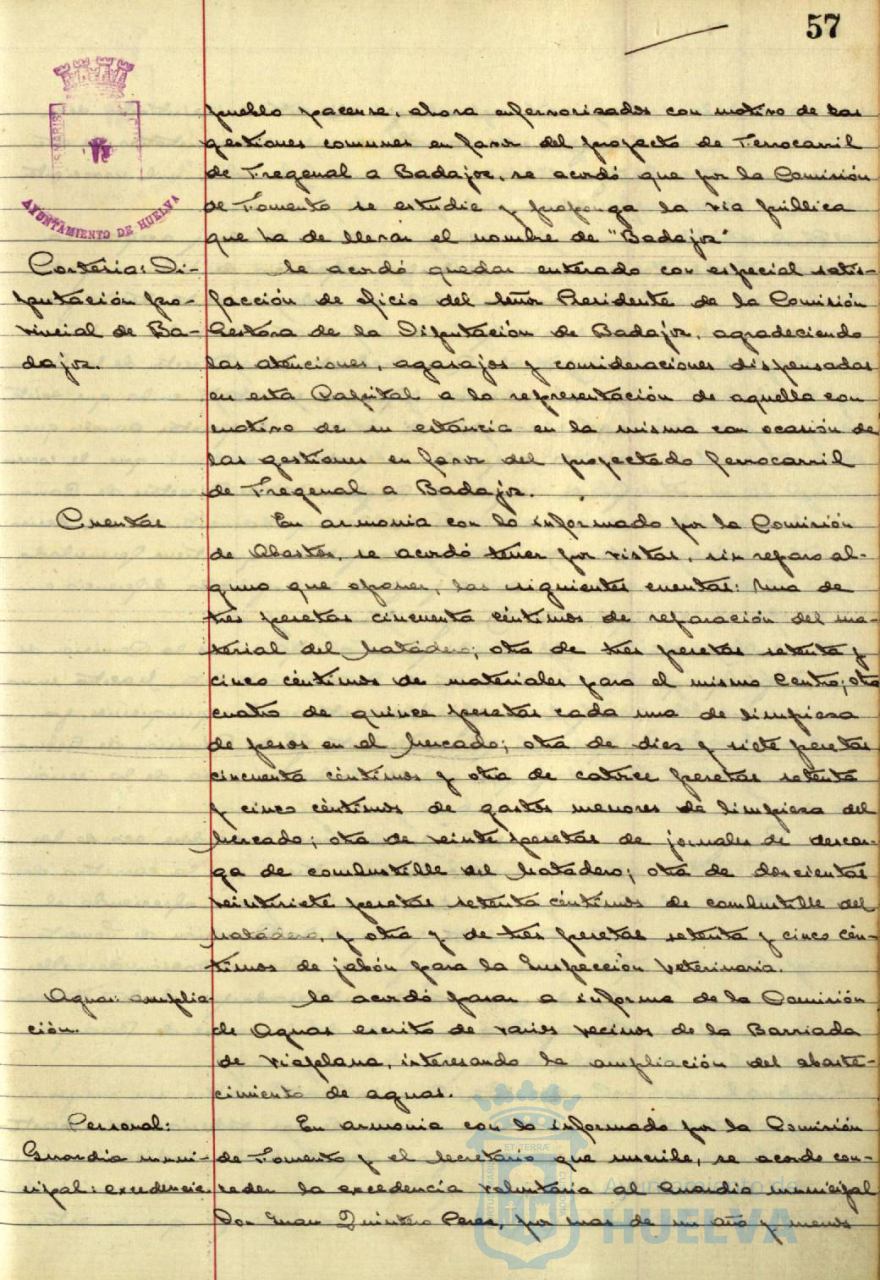 57
AYUNTAMIENTO DE HUELVA
pueblo pacense, ahora enfervorizados con motivo de las
gestiones comunes en favor del proyecto de Ferrocarril
de Fregenal a Badajoz, se acordó que por la Comisión
de Fomento se estudie y proponga la vía pública
que ha de llevar el nombre de "Badajoz"
Cortesia: Di-
putación pro-
vincial de Ba-
dajoz.
Se acordó quedar enterado con especial satis-
facción de oficio del Señor Presidente de la Comisión
Gestora de la Diputación de Badajoz, agradeciendo
las atenciones, agasajos y consideraciones dispensadas
en esta Capital a la representación de aquella con
motivo de su estancia en la misma con ocasión de
las gestiones en favor del proyectado ferrocarril
de Fregenal a Badajoz.
Cuentas
En armonia con lo informado por la Comisión
de Abastos, se acordó tener por vistas, sin reparo al-
guno que oponer, las siguientes cuentas: Una de
tres pesetas cincuenta céntimos de reparación del ma-
terial del Matadero; otra de tres pesetas setenta y
cinco céntimos de materiales para el mismo Centro; otra
cuatro de quince pesetas cada una de limpieza
de pesos en el Mercado; otra de diez y siete pesetas
cincuenta céntimos y otra de catorce pesetas setenta
y cinco céntimos de gastos menores de limpieza del
Mercado; otra de veinte pesetas de jornales de descar-
ga de combustible del Matadero; otra de doscientas
veintisiete pesetas setenta céntimos de combustible del
Matadero, y otra y de tres pesetas setenta y cinco cén-
timos de jabón para la Inspección Veterinaria.
Aguas: amplia
ción.
Se acordó pasar a informe de la Comisión
de Aguas escrito de varios vecinos de la Barriada
de Viaplana, interesando la ampliación del abaste-
cimiento de aguas.
Personal:
Guardia muni-
cipal: excedencia.
En armonia con lo informado por la Comisión
de Fomento y el Secretario que suscribe, se acordo con-
ceder la excedencia voluntaria al Guardia municipal
Don Juan Quintero Perez, por mas de un año y menos
Ayuntamiento de
HUELVA